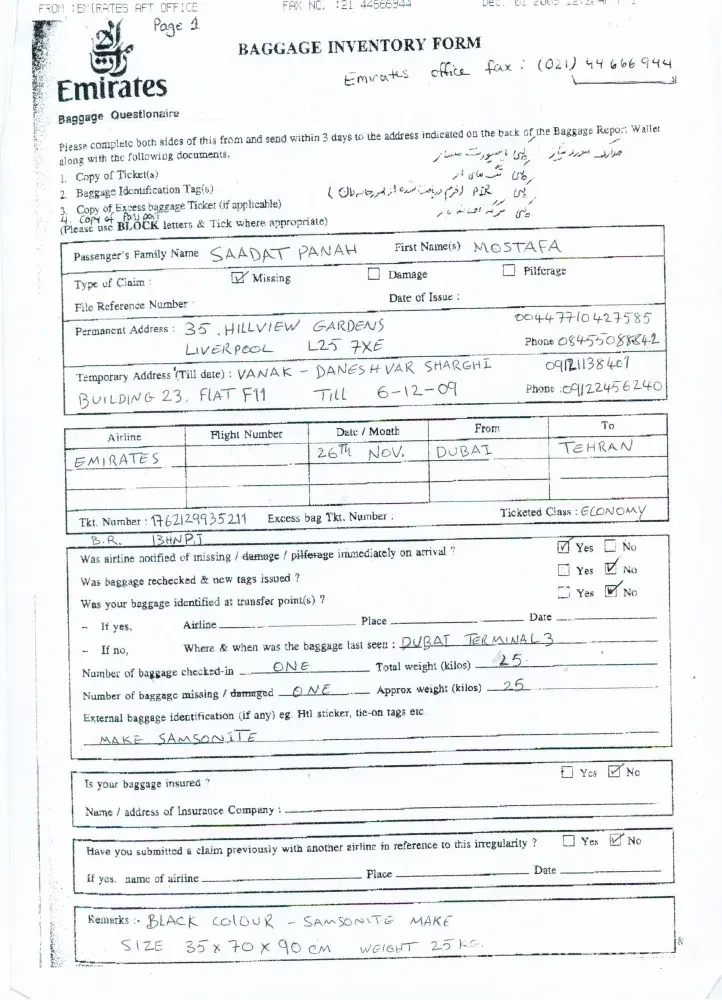 FROM :EMIRATES AFT OFFICE FAX NO. :21 44566944 DEC. 01 2009
Page 1
BAGGAGE INVENTORY FORM
Emirates office fax : (021) 44666944
Emirates
Baggage Questionaire
Please complete both sides of this from and send within 3 days to the address indicated on the back of the Baggage Report Wallet
along with the following documents.
1. Copy of Ticket(s)
2. Baggage Identification Tag(s)
3. Copy of Excess baggage Ticket (if applicable)
4. COPY of Passport
(Please use BLOCK letters & Tick where appropriate)
Passenger's Family Name SAADAT PANAH First Name(s) MOSTAFA
Type of Claim : ☑ Missing ☐ Damage ☐ Pilferage
File Reference Number : Date of Issue :
Permanent Address : 35 . HILLVIEW GARDENS 00447710427585
LIVERPOOL L25 7XE Phone 08455088842
Temporary Address (Till date) : VANAK - DANESHVAR SHARGHI 09121138401
BUILDING 23, FLAT F11 TILL 6-12-09 Phone :09122456240
Airline Flight Number Date / Month From To
EMIRATES 26TH NOV. DUBAI TEHRAN
Tkt. Number : 1762129935211 Excess bag Tkt. Number : Ticketed Class : ECONOMY
B.R. I3HNPI
Was airline notified of missing / damage / pilferage immediately on arrival ? ☑ Yes ☐ No
Was baggage rechecked & new tags issued ? ☐ Yes ☑ No
Was your baggage identified at transfer point(s) ? ☐ Yes ☑ No
- If yes, Airline Place Date
- If no, Where & when was the baggage last seen : DUBAI TERMINAL 3
Number of baggage checked-in ONE Total weight (kilos) 25
Number of baggage missing / damaged ONE Approx weight (kilos) 25
External baggage identification (if any) eg. Htl sticker, tie-on tags etc
MAKE SAMSONITE
Is your baggage insured ? ☐ Yes ☑ No
Name / address of Insurance Company :
Have you submitted a claim previously with another airline in reference to this irregularity ? ☐ Yes ☑ No
If yes. name of airline Place Date
Remarks :- BLACK COLOUR - SAMSONITE MAKE
SIZE 35 x 70 x 90 CM WEIGHT 25 KG.